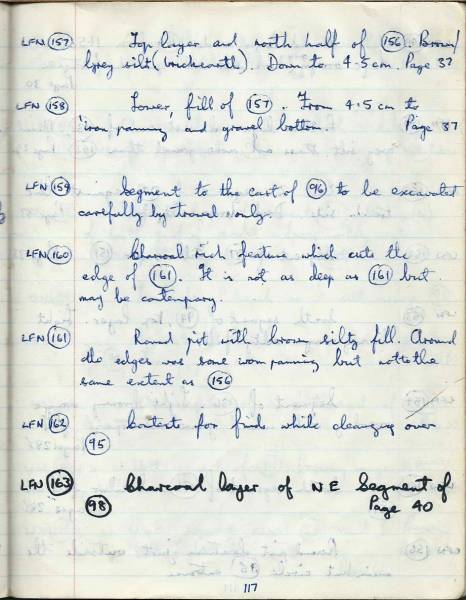 LFN 157 Top layer and north half of 156. Brown/
Grey silt (brickearth). Down to 4.5cm. Page 37
LFN 158 Lower, fill of 157. From 4.5cm to
iron panning and gravel bottom. Page 37
LFN 159 Segment to the east of 96 to be excavated
carefully by trowel only.
LFN 160 Charcoal rich feature which cuts the
edge of 161. It is not as deep as 161 but
may be contempary.
LFN 161 Round pit with brown silty fill. Around
the edges was some iron panning but not to the
same extent as 156
LFN 162 Context for finds while cleaning over
95
LFN 163 Charcoal layer of NE Segment of
98 Page 40
117